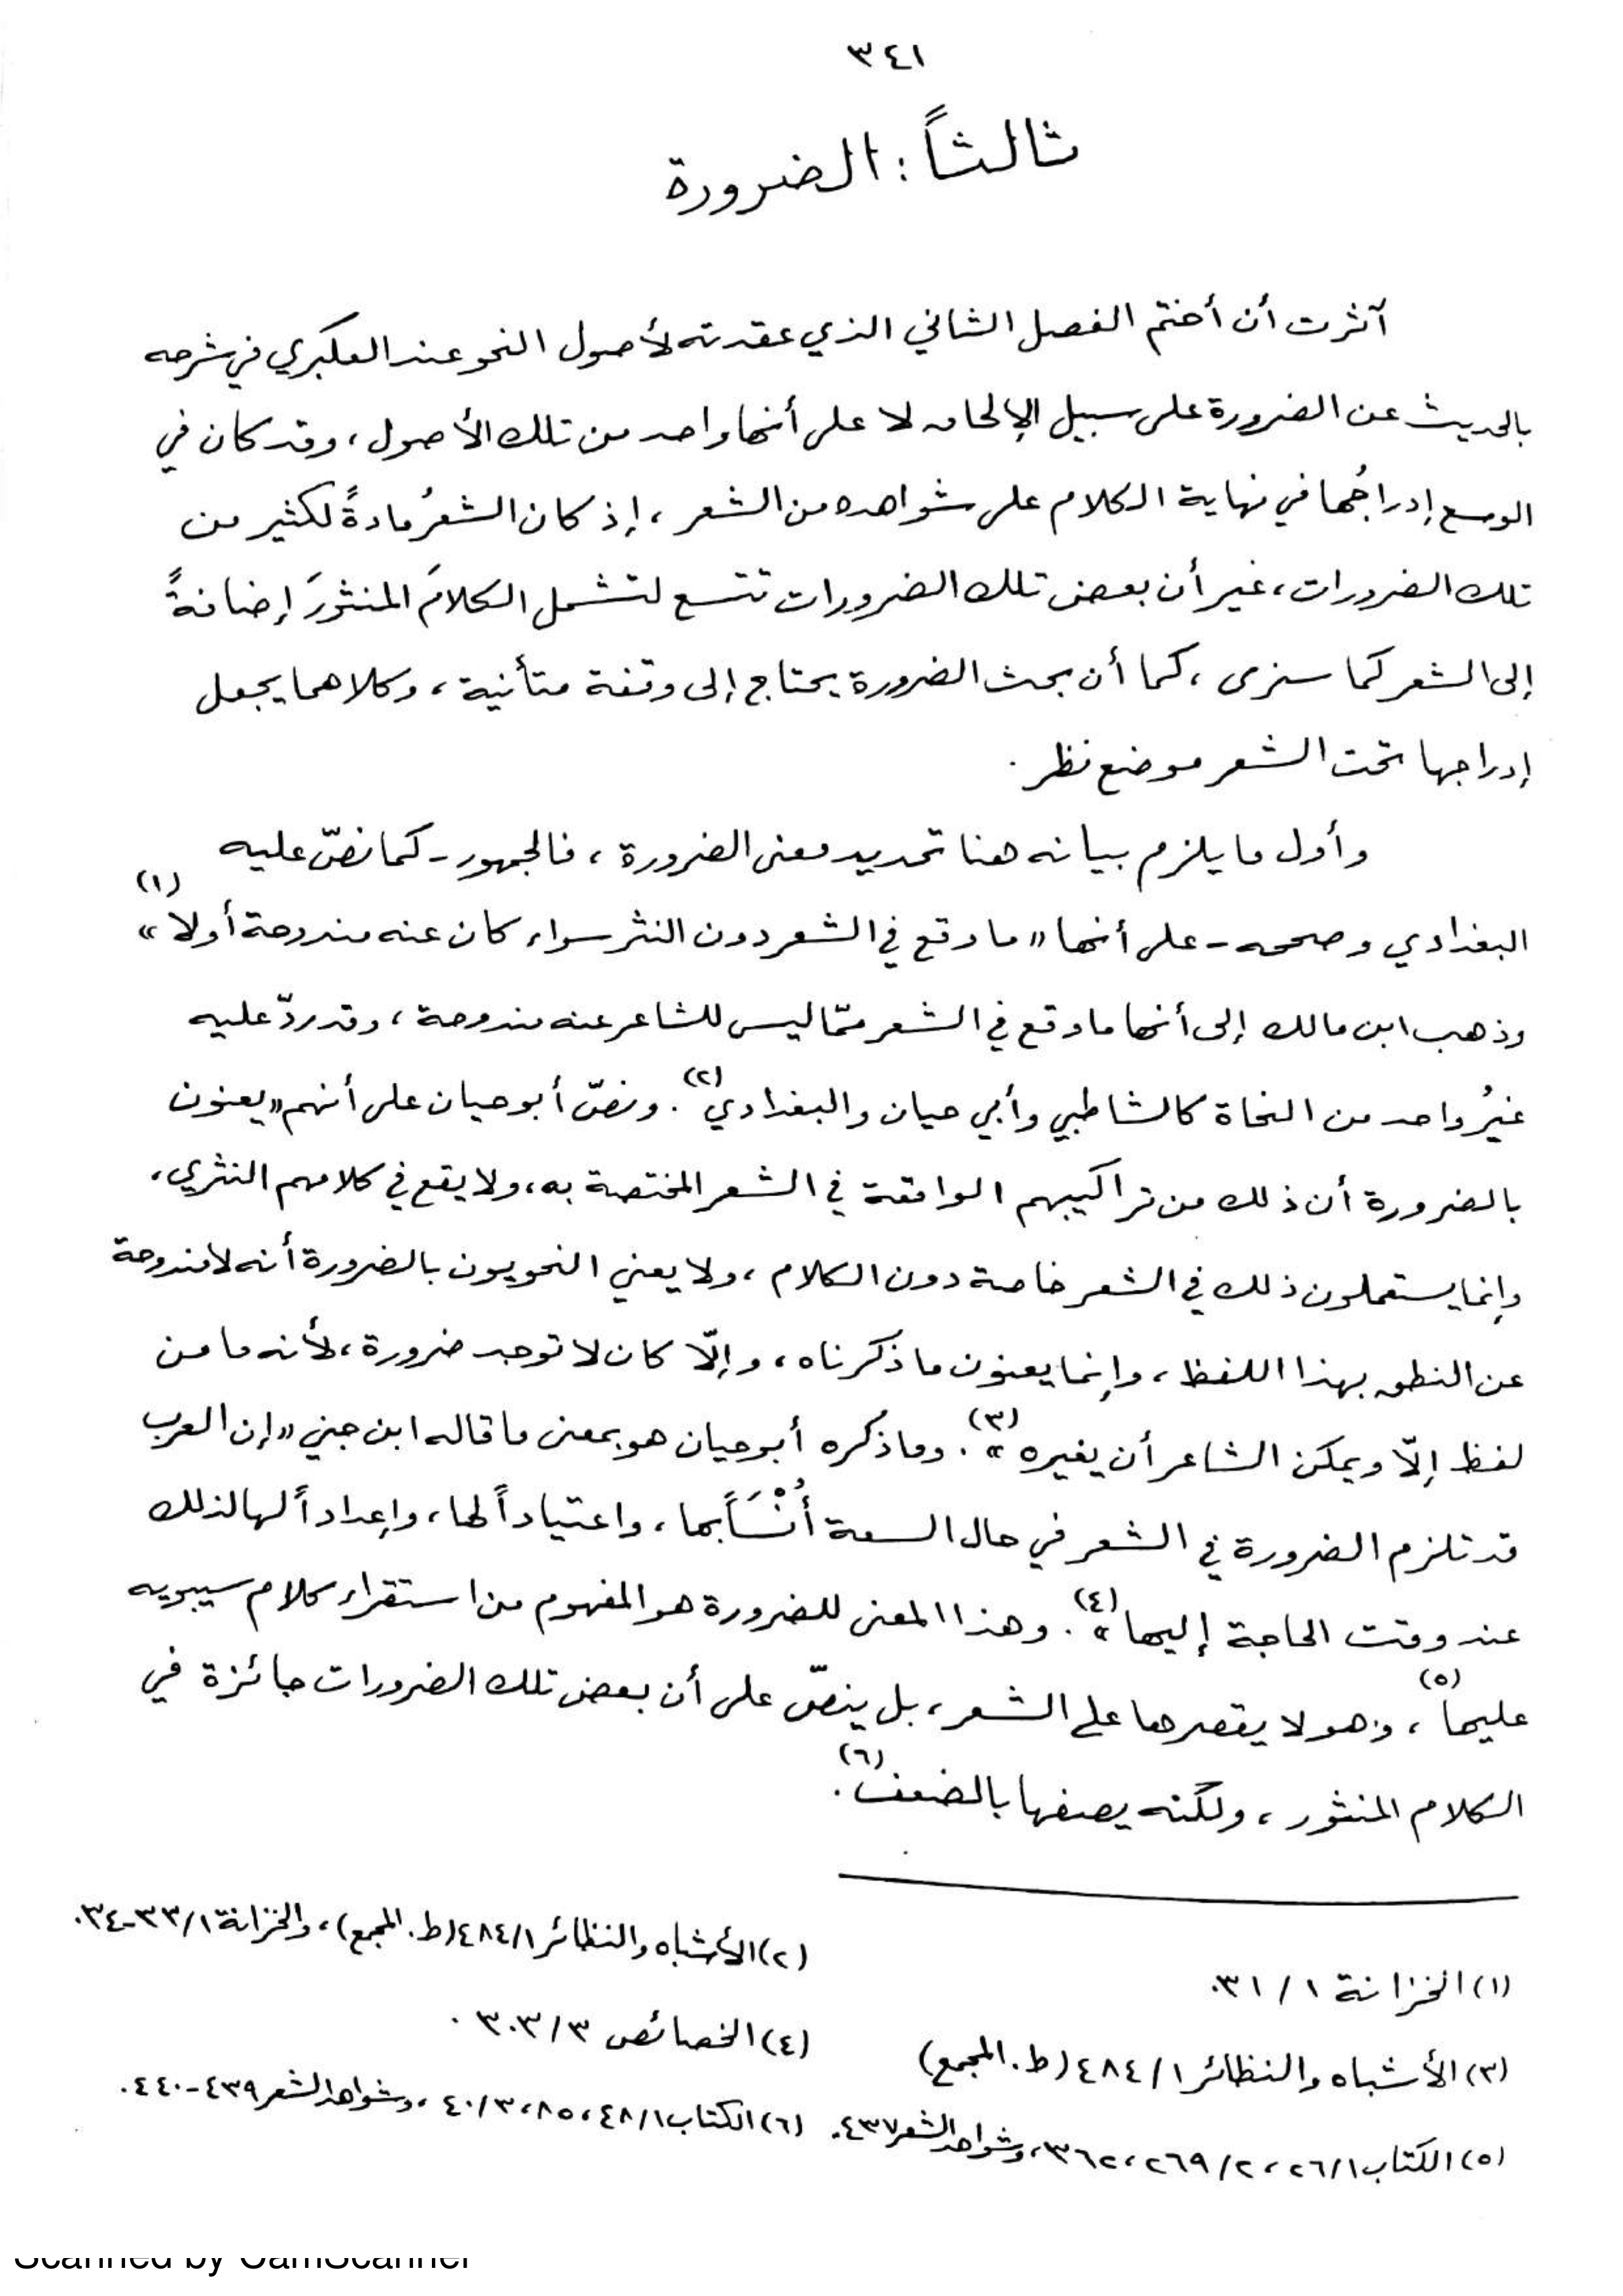 ٣٤١
ثالثاً : الضرورة
آثرت أن أختم الفصل الثاني الذي عقدته لأصول النحو عند العكبري في شرحه
بالحديث عن الضرورة على سبيل الإلحاق لا على أنها واحد من تلك الأصول ، وقد كان في
الوسع إدراجُها في نهاية الكلام على شواهده من الشعر ، إذ كان الشعرُ مادةً لكثير من
تلك الضرورات ، غير أن بعض تلك الضرورات تتسع لتشمل الكلامَ المنثورَ إضافةً
إلى الشعر كما سنرى ، كما أن بحث الضرورة يحتاج إلى وقفة متأنية ، وكلاهما يجعل
إدراجها تحت الشعر موضع نظر .
وأول ما يلزم بيانه هنا تحديد معنى الضرورة ، فالجمهور - كما نصّ عليه
البغدادي وصححه - على أنها « ما وقع في الشعر دون النثر سواء كان عنه مندوحة أولا »(١)
وذهب ابن مالك إلى أنها ما وقع في الشعر ممّا ليس للشاعر عنه مندوحة ، وقد ردّ عليه
غيرُ واحد من النحاة كالشاطبي وأبي حيان والبغدادي(٢) . ونصّ أبو حيان على أنهم « يعنون
بالضرورة أن ذلك من تراكيبهم الواقعة في الشعر المختصة به ، ولا يقع في كلامهم النثري ،
وإنما يستعملون ذلك في الشعر خاصة دون الكلام ، ولا يعني النحويون بالضرورة أنه لا مندوحة
عن النطق بهذا اللفظ ، وإنما يعنون ما ذكرناه ، وإلّا كان لا توجد ضرورة ، لأنه ما من
لفظ إلّا ويمكن الشاعر أن يغيره »(٣) . وما ذكره أبو حيان هو بمعنى ما قاله ابن جني « إن العرب
قد تلزم الضرورة في الشعر في حال السعة أُنْسَاً بها ، واعتياداً لها ، وإعداداً لها لذلك
عند وقت الحاجة إليها »(٤) . وهذا المعنى للضرورة هو المفهوم من استقراء كلام سيبويه
عليها(٥) ، وهو لا يقصرها على الشعر ، بل ينصّ على أن بعض تلك الضرورات جائزة في
الكلام المنثور ، ولكنه يصفها بالضعف(٦) .
(١) الخزانة ١ / ٣١.
(٢) الأشباه والنظائر ١/ ٤٨٤ (ط. المجمع) ، والخزانة ١/ ٣٣-٣٤.
(٣) الأشباه والنظائر ١ / ٤٨٤ (ط. المجمع)
(٤) الخصائص ٣ / ٣٠٣ .
(٥) الكتاب ١/ ٢٦ ، ٢/ ٢٦٩ ، ٣٦٢ ، وشواهد الشعر ٤٣٧.
(٦) الكتاب ١/ ٤٨ ، ٨٥ ، ٣/ ٤٠ ، وشواهد الشعر ٤٣٩-٤٤٠.
Scanned by CamScanner